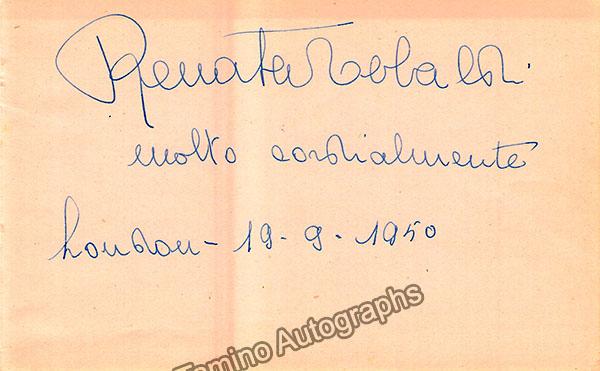 Renata Tebaldi
molto cordialmente
London - 19 - 9 - 1950
Tamino Autographs